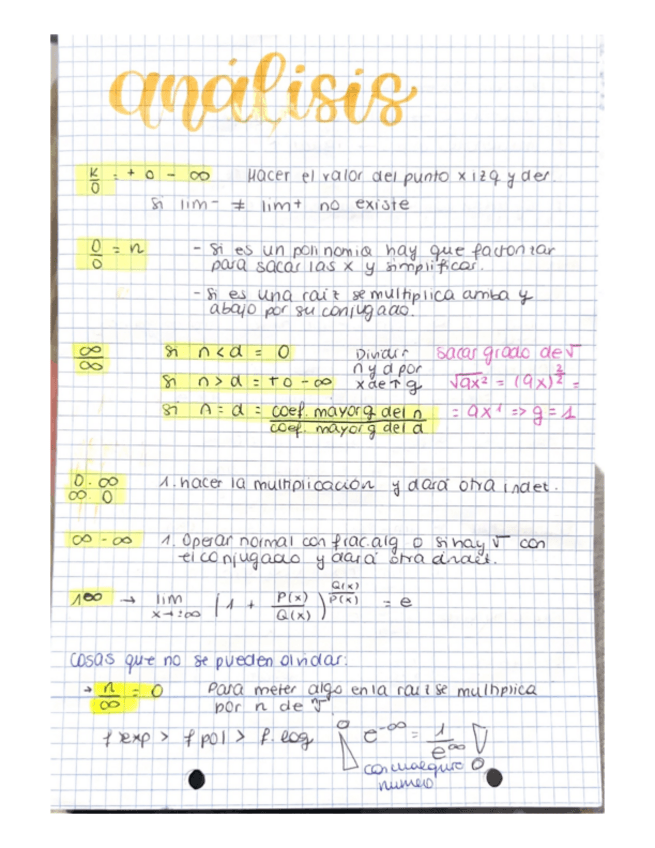 análisis
K/0 = + o - ∞ Hacer el valor del punto x izq y der.
Si lim- ≠ lim+ no existe
0/0 = n - Si es un polinomio hay que factorizar
para sacar las x y simplificar.
- Si es una raiz se multiplica arriba y
abajo por su conjugado.
∞/∞ Si n < d = 0 Dividir n y d por x de ↑ g
Si n > d = + o - ∞
Si n = d = coef. mayor g del n / coef. mayor g del d
sacar grado de √
√ax² = (ax)^(2/2) =
= ax¹ => g = 1
0 · ∞
∞ · 0 1. hacer la multiplicación y dará otra indet.
∞ - ∞ 1. Operar normal con frac. alg o si hay √ con
el conjugado y dará otra indet.
1^∞ → lim x→±∞ (1 + P(x)/Q(x))^(Q(x)/P(x)) = e
Cosas que no se pueden olvidar:
→ n/∞ = 0 Para meter algo en la raiz se multiplica
por n de √.
f exp > f pol > f. log ¡ e^-∞ = 1/e^∞ !
con cualquier
numero